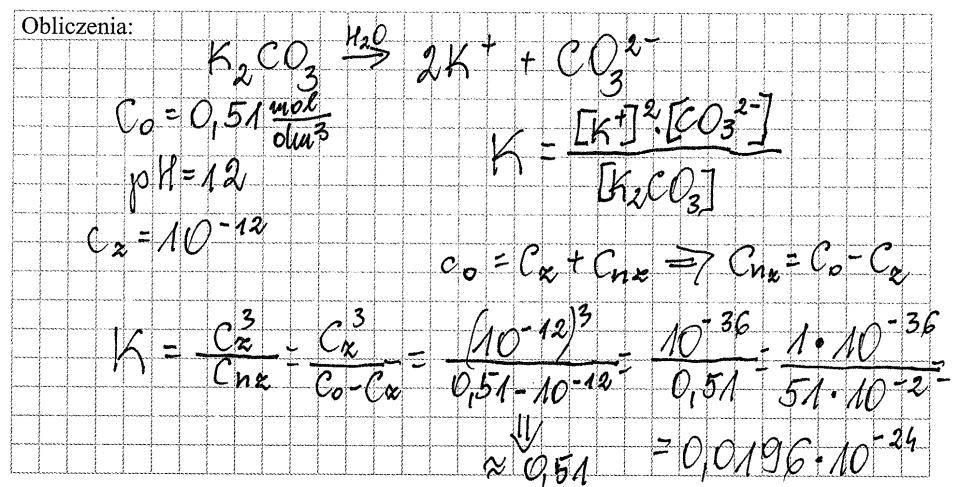 Obliczenia:
K₂CO₃ →(H₂O) 2K⁺ + CO₃²⁻
C₀ = 0,51 mol/dm³
K = [K⁺]²·[CO₃²⁻] / [K₂CO₃]
pH = 12
c_z = 10⁻¹²
c₀ = C_z + C_nz ⇒ C_nz = C₀ - C_z
K = C_z³/C_nz = C_z³/(C₀ - C_z) = (10⁻¹²)³/(0,51 - 10⁻¹²) = 10⁻³⁶/0,51 = 1·10⁻³⁶/51·10⁻² =
⇓
≈ 0,51
= 0,0196·10⁻²⁴